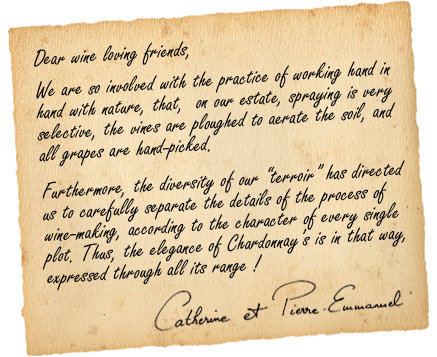 Dear wine loving friends,
We are so involved with the practice of working hand in
hand with nature, that, on our estate, spraying is very
selective, the vines are ploughed to aerate the soil, and
all grapes are hand-picked.
Furthermore, the diversity of our "terroir" has directed
us to carefully separate the details of the process of
wine-making, according to the character of every single
plot. Thus, the elegance of Chardonnay's is in that way,
expressed through all its range !
Catherine et Pierre-Emmanuel